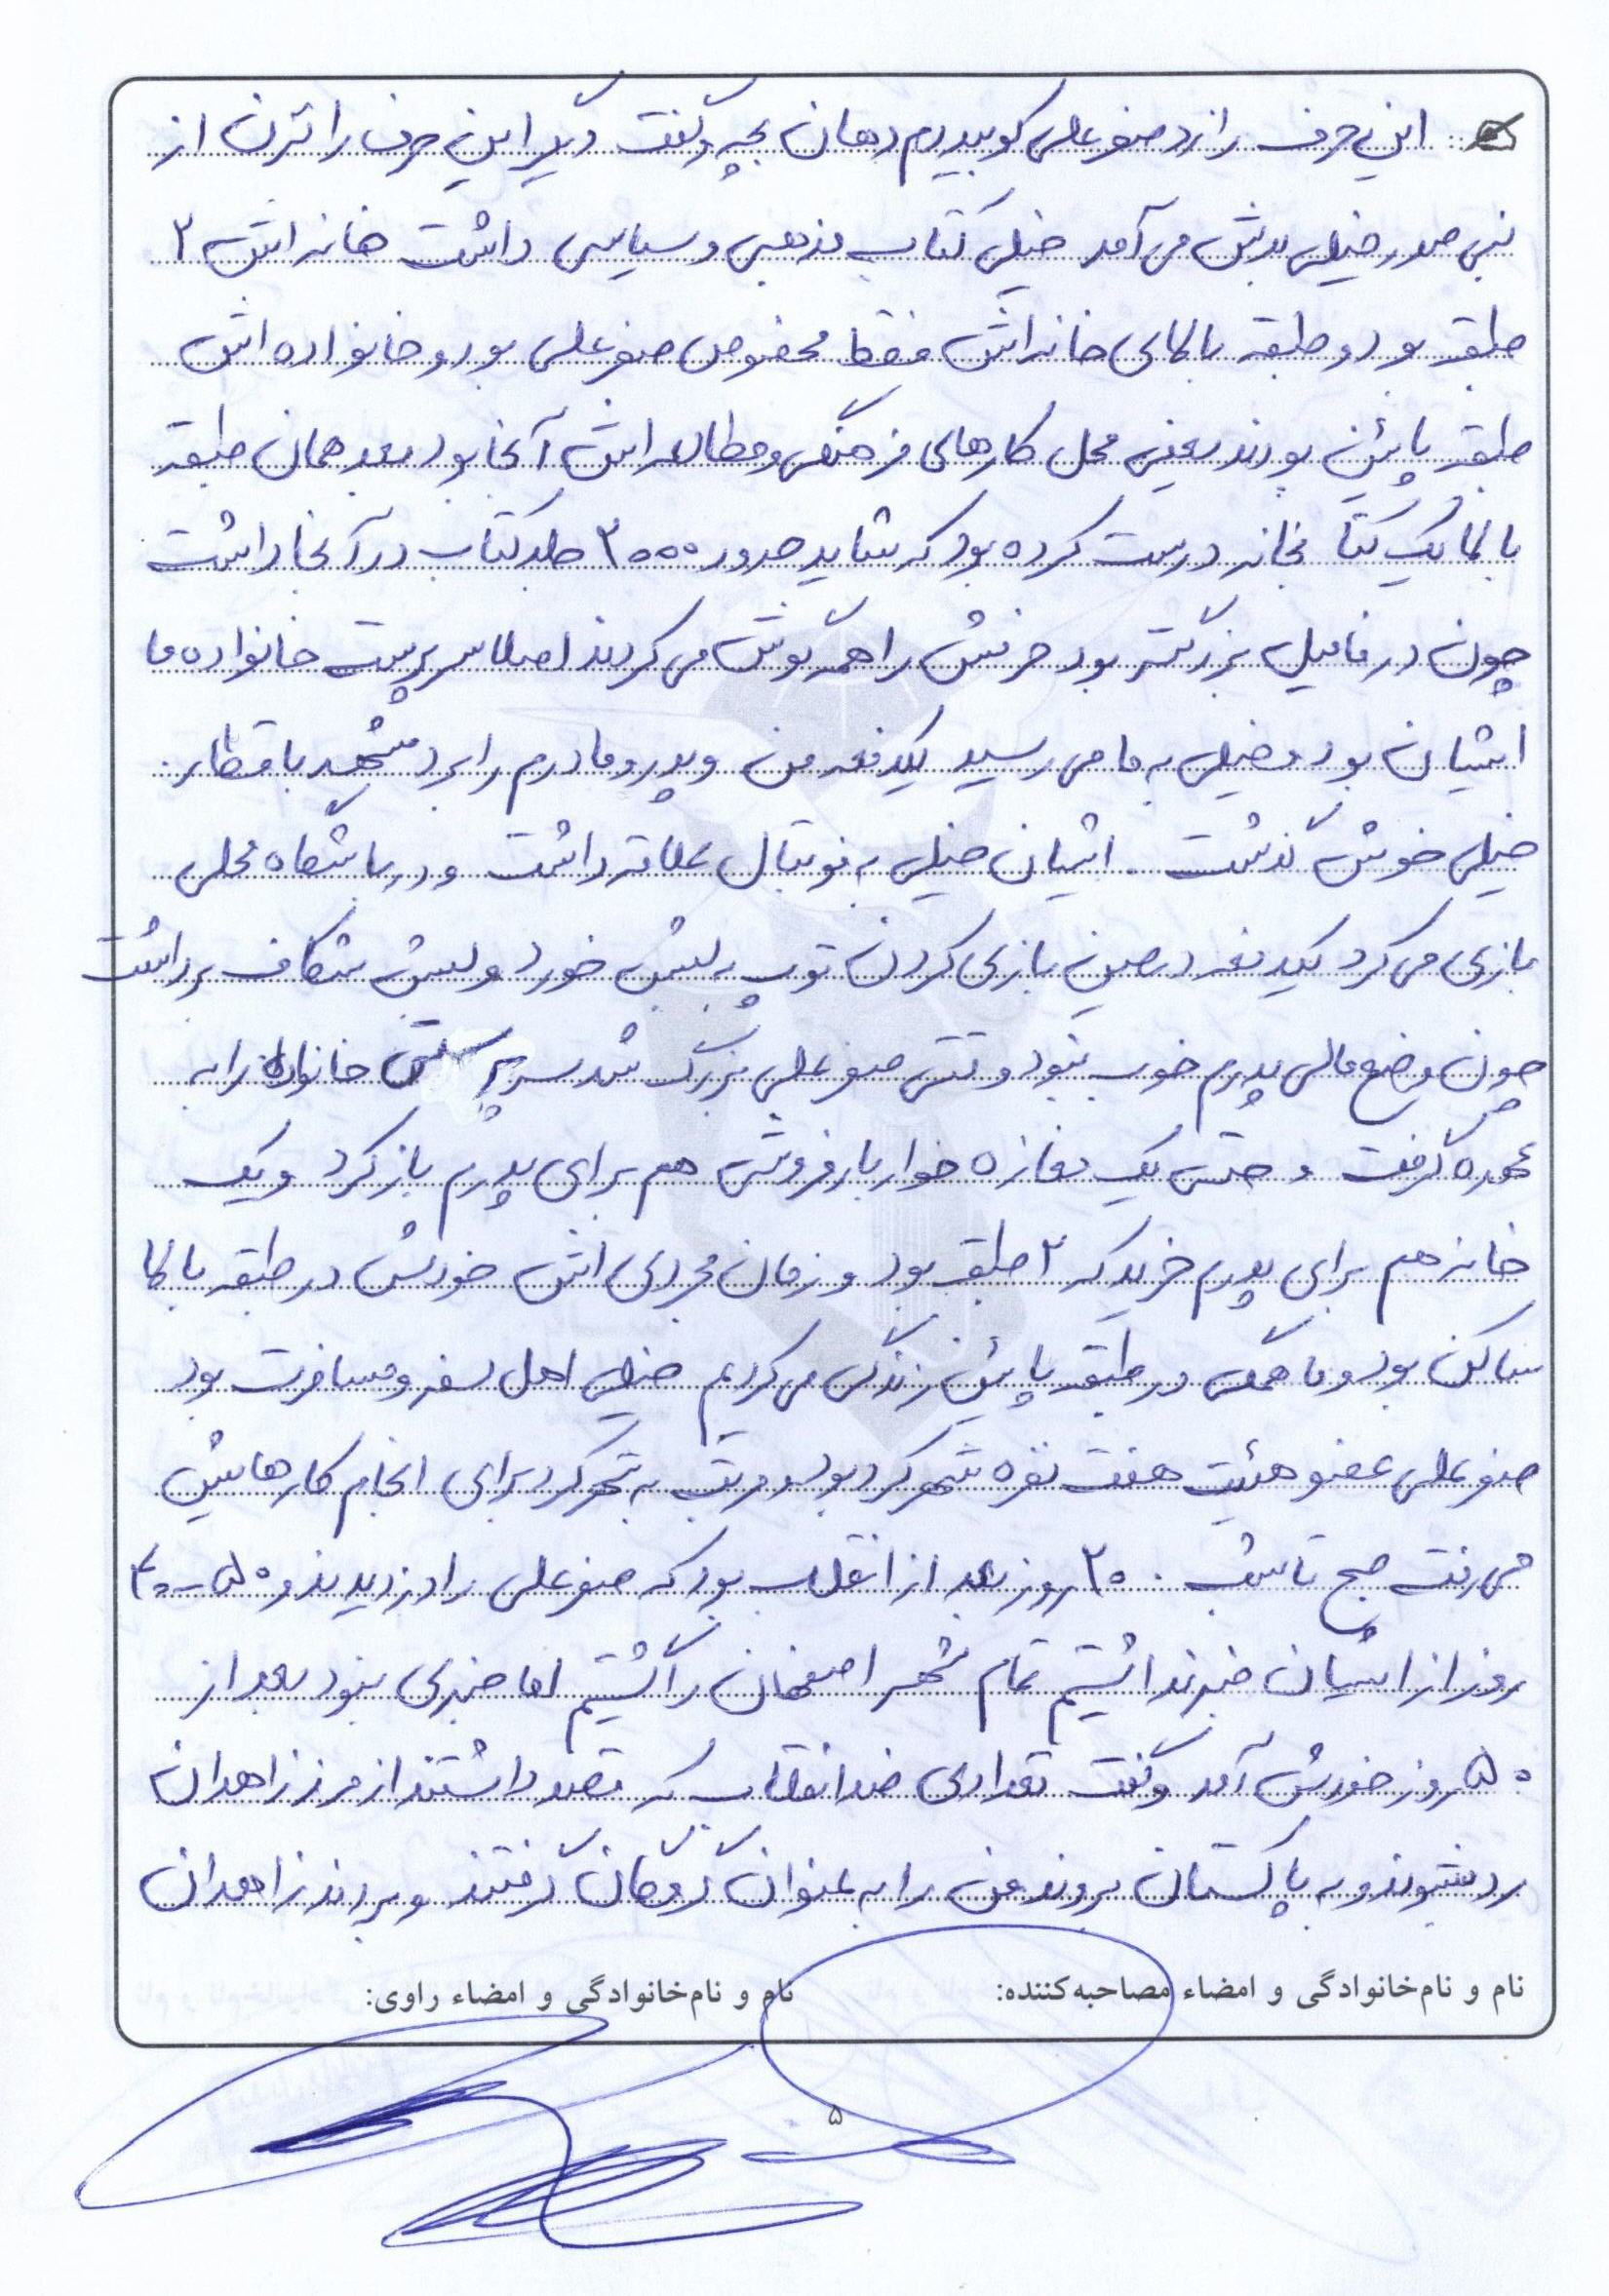 این حرف را زد صفرعلی کوبید دم دهان بچه و گفت دیگر این حرف را نزن از
بنی صدر خیلی بدش می آمد خیلی کتاب مذهبی و سیاسی داشت خانه اش ۲
طبقه بود و طبقه بالای خانه اش فقط مخصوص صفرعلی بود و خانواده اش
طبقه پائین بودند یعنی محل کارهای فرهنگی و مطالعه اش آنجا بود بعد همان طبقه
بالا یک کتابخانه درست کرده بود که شاید حدود ۳۰۰۰ جلد کتاب در آنجا داشت
چون در فامیل بزرگتر بود حرفش را همه گوش می کردند اصلا سرپرست خانواده ما
ایشان بود و خیلی به ما می رسید یکدفعه من و پدر و مادرم را برد مشهد با قطار
خیلی خوش گذشت . ایشان خیلی به فوتبال علاقه داشت و در باشگاه محلی
بازی می کرد یکدفعه در حین بازی کردن توپ به لبش خورد و لبش شکاف برداشت
چون وضع مالی پدرم خوب نبود وقتی صفرعلی بزرگ شد سرپرستی خانواده را به
عهده گرفت و حتی یک مغازه خواربار فروشی هم برای پدرم باز کرد و یک
خانه هم برای پدرم خرید که ۲ طبقه بود و زمان مجردی اش خودش در طبقه بالا
ساکن بود و ما همگی در طبقه پایین زندگی می کردیم خیلی اهل سفر و مسافرت بود
صفرعلی عضو هیئت هفت نفره شهرکرد بود و مرتب به شهرکرد برای انجام کارهایش
می رفت صبح تا شب . ۲۰ روز بعد از انقلاب بود که صفرعلی را دزدیدند و ۵۰-۴۰
روز از ایشان خبر نداشتیم تمام شهر اصفهان را گشتیم اما خبری نبود بعد از
۵۰ روز خودش آمد و گفت تعدادی ضد انقلاب که قصد داشتند از مرز زاهدان
رد شوند و به پاکستان بروند من را به عنوان گروگان گرفتند و بردند زاهدان
نام و نام‌خانوادگی و امضاء مصاحبه‌کننده: نام و نام‌خانوادگی و امضاء راوی:
۵